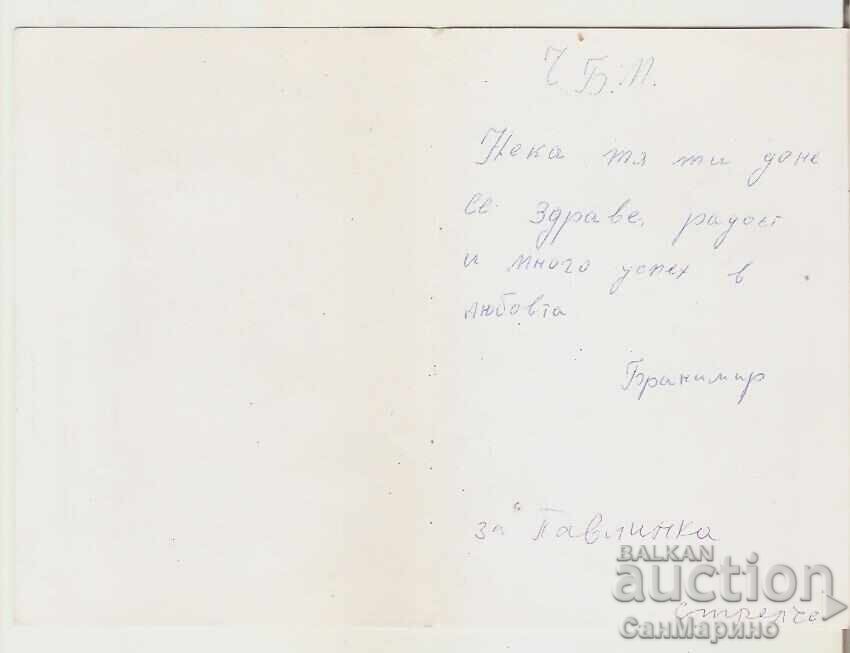 Ч Б.М.
Нека тя ти доне
се здраве, радост
и много успех в
любовта
Бранимир
за Павлинка
BALKAN
auction
СанМарино